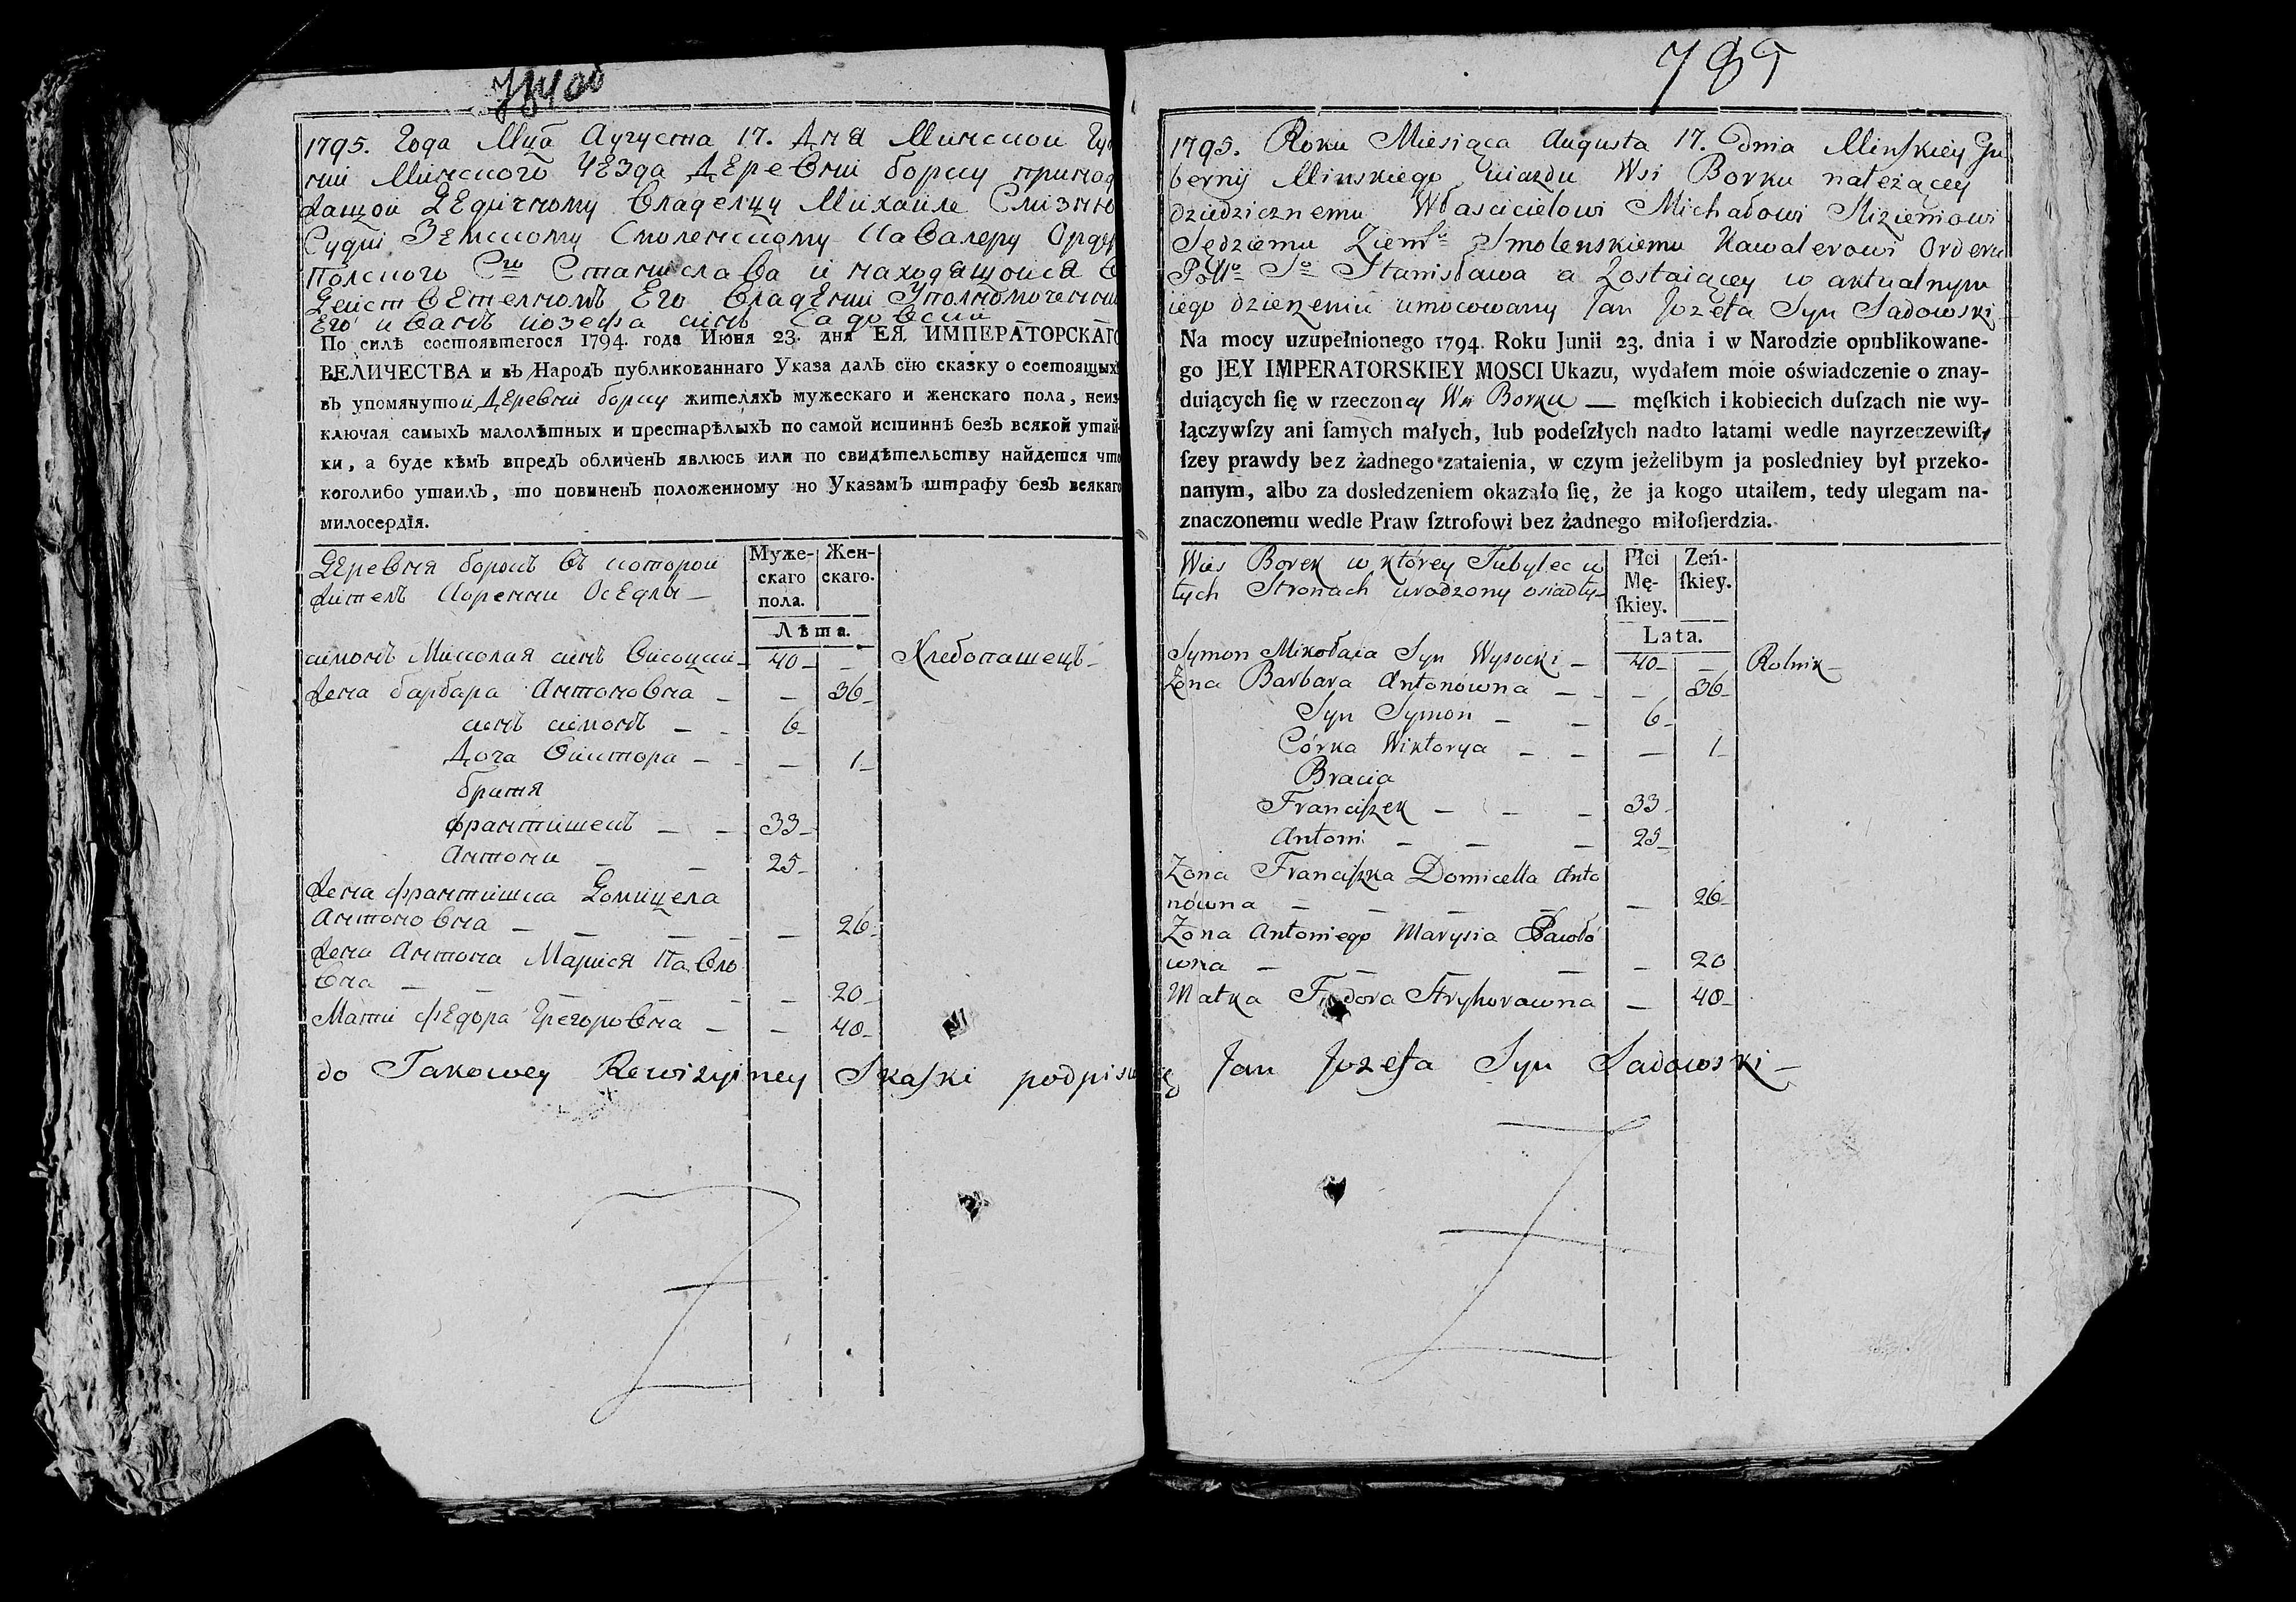 784 об
1795. Года Мца Аугуста 17. Дня Минской Гу
нии Минского Уезда Деревни борку
жащой Дедичному владелцу Михаиле Слизню
Судии Земскому Смоленскому Кавалеру Орде
Полского Сго Станислава и находящойся в
Дейст ветелном Его владении Уполномоченни
Его иванъ иозефа синъ Садовский
По силѣ состоявшегося 1794. года Июня 23. дня ЕЯ. ИМПЕРАТОРСКАГО
ВЕЛИЧЕСТВА и въ Народъ публикованнаго Указа далъ сїю сказку о состоящихъ
въ упомянутой Деревни борку жителяхъ мужескаго и женскаго пола, неиз
ключая самыхъ малолѣтныхъ и престарѣлыхъ по самой истиннѣ безъ всякой утай-
ки, а буде кѣмъ впредъ обличенъ явлюсь или по свидѣтельству найдется что
коголибо утаилъ, то повиненъ положенному по Указамъ штрафу безъ всякаго
милосердїя.
Деревня борокъ въ которой
жителъ Коренни Оседли —
Муже-
скаго
пола.
Жен-
скаго.
Лѣта.
симонъ Миколая синъ Височки — 40 — — Хлебопашецъ —
жена барбара Антоновна — — 36 —
синъ симонъ — — 6 —
Доча виктора — — — 1 —
братя
франтишекъ — — 33 —
Антони — — 25 —
жена франтишка Домицела
Антоновна — — — — — 26 —
жена Антона Марися Павло
вна — — — — — 20 —
Мати федора Грегоровна — — 40 —
do Takowey Rewizyiney Skaſki podpisuię Jan Jozefa Syn Sadowski —
785
1795. Roku Miesiąca Augusta 17. dnia Minſkiey Gu
bernij Minskiego uiazdu Wsi Borku należącey
dziedzicznemu Włascicielowi Michałowi Slizieniowi
Sędziemu Ziem: Smolenskiemu Kawalerowi Orderu
Po Sº Stanisława a Zostaiącey w aktualnym
iego dzierzeniu umocowany Jan Jozefa Syn Sadowski
Na mocy uzupełnionego 1794. Roku Junii 23. dnia i w Narodzie opublikowane-
go JEY IMPERATORSKIEY MOSCI Ukazu, wydałem moie oświadczenie o znay-
duiących ſię w rzeczoney Wsi Borku — męſkich i kobiecich duſzach nie wy-
łączywſzy ani ſamych małych, lub podeſzłych nadto latami wedle nayrzeczewiſt-
ſzey prawdy bez żadnego zataienia, w czym jeżelibym ja posledniey był przeko-
nanym, albo za dosledzeniem okazało ſię, że ja kogo utaiłem, tedy ulegam na-
znaczonemu wedle Praw ſztrofowi bez żadnego miłoſierdzia.
Wies Borek w ktorey Tubylec w
tych Stronach urodzony osiadły —
Płci
Mę-
ſkiey.
Zeń-
ſkiey.
Lata.
Symon Mikołaia Syn Wysocki — 40 — — Rolnik —
Zena Barbara Antonówna — — — 36 —
Syn Symon — — 6 —
Córka Wiktorya — — — 1 —
Bracia
Franciſzek — — — 33 —
Antoni — — — 25 —
Zona Franciſzka Domicella Anto
nówna — — — — — 26 —
Zona Antoniego Marysia Pawłó
wna — — — — 20
Matka Fiedora Hryhorowna — 40 —